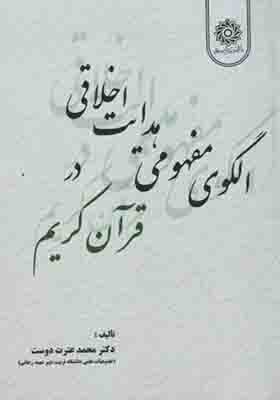 الگوی مفهومی هدایت اخلاقی
در
قرآن کریم
تألیف:
دکتر محمد عترت دوست
(عضو هیأت علمی دانشگاه تربیت دبیر شهید رجائی)